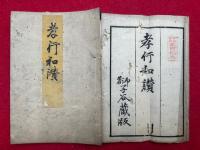 孝行和讃
孝行和讃
獅子谷蔵版